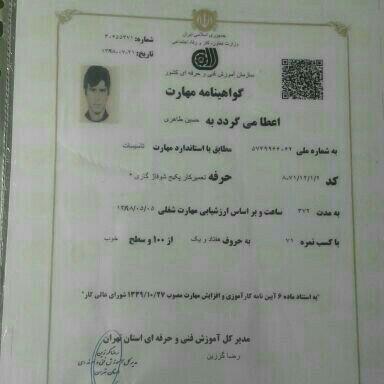 جمهوری اسلامی ایران
وزارت تعاون، کار و رفاه اجتماعی
شماره: ۳۰۲۵۵۳۷۱
تاریخ: ۱۳۹۸،۰۷،۲۱
سازمان آموزش فنی و حرفه ای کشور
گواهینامه مهارت
اعطا می گردد به حسین طاهری
به شماره ملی ۵۷۴۹۹۶۴۰۶۲ مطابق با استاندارد مهارت تاسیسات
کد ۸،۷۱/۱۲/۱/۲ حرفه تعمیرکار پکیج شوفاژ گازی *
به مدت ۳۷۲ ساعت و بر اساس ارزشیابی مهارت شغلی ۱۳۹۸/۰۵/۰۵
با کسب نمره ۷۱ به حروف هفتاد و یک از ۱۰۰ و سطح خوب
"به استناد ماده ۶ آیین نامه کارآموزی و افزایش مهارت مصوب ۱۳۴۹/۱۰/۲۷ شورای عالی کار"
مدیر کل آموزش فنی و حرفه ای استان تهران
رضا گزرین